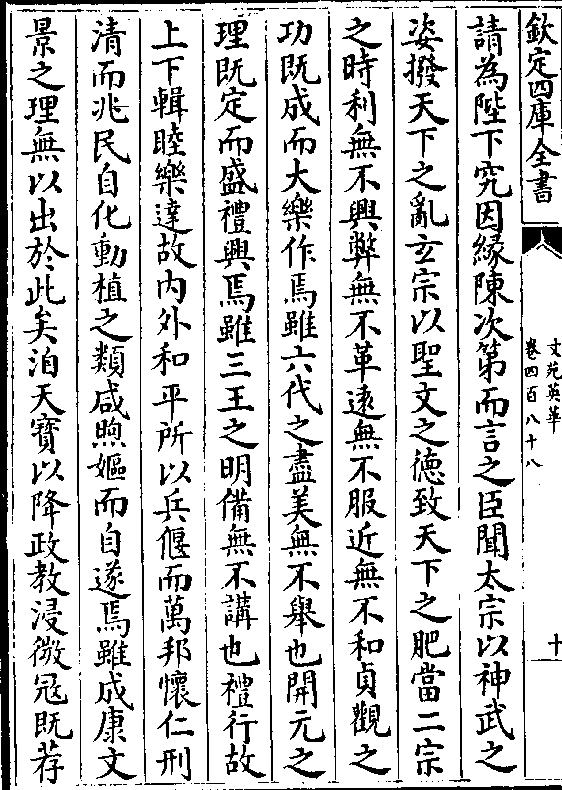 欽定四庫全書
文苑英華
卷四百八十八
十
請為陛下究因緣陳次第而言之臣聞太宗以神武之
姿撥天下之亂玄宗以聖文之德致天下之肥當二宗
之時利無不興弊無不革遠無不服近無不和貞觀之
功既成而大樂作焉雖六代之盡美無不舉也開元之
理既定而盛禮興焉雖三王之明備無不講也禮行故
上下輯睦樂達故內外和平所以兵偃而萬邦懷仁刑
清而兆民自化動植之類咸煦嫗而自遂焉雖成康文
景之理無以出於此矣洎天寶以降政教浸微寇既荐